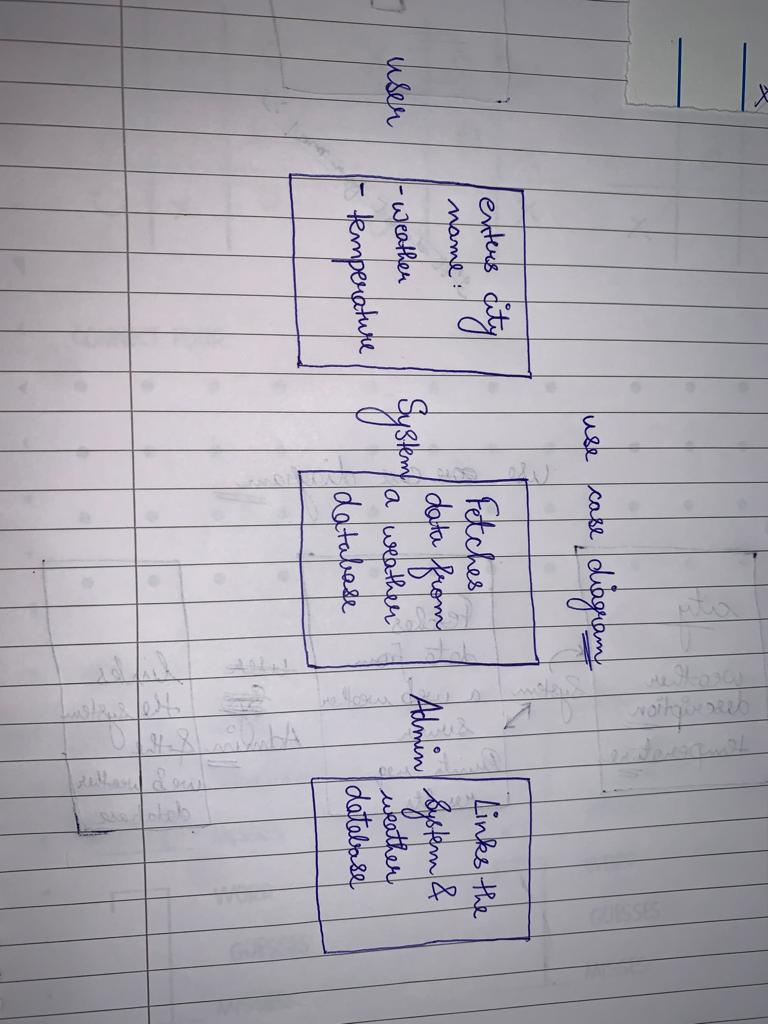 use case diagram
user
enters city
name:
- weather
- temperature
System
Fetches
data from
a weather
database
Admin
Links the
System &
weather
database